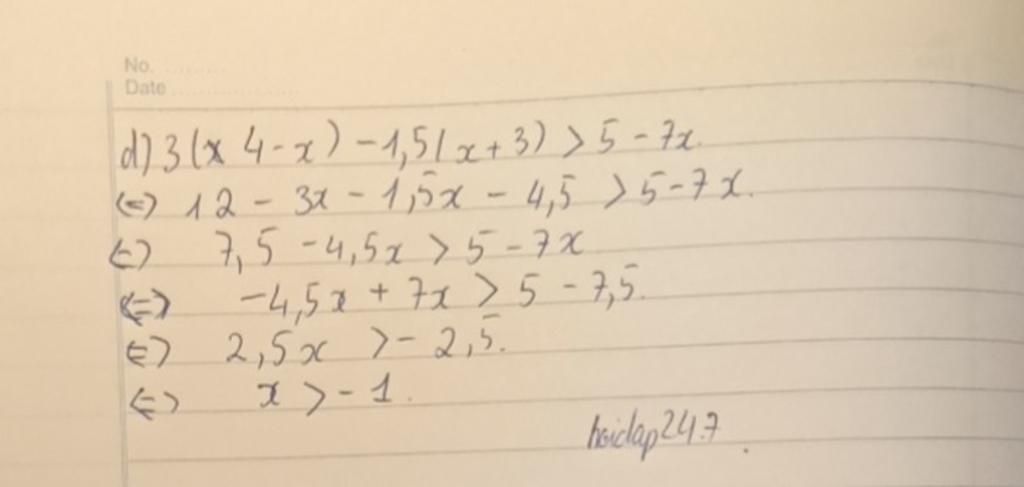 No. ..........
Date ....................
d) 3(x 4-x) - 1,5(x+3) > 5 - 7x.
<=> 12 - 3x - 1,5x - 4,5 > 5-7x.
<=> 7,5 - 4,5x > 5 - 7x
<=> -4,5x + 7x > 5 - 7,5.
<=> 2,5x > - 2,5.
<=> x > - 1.
hoidap247.